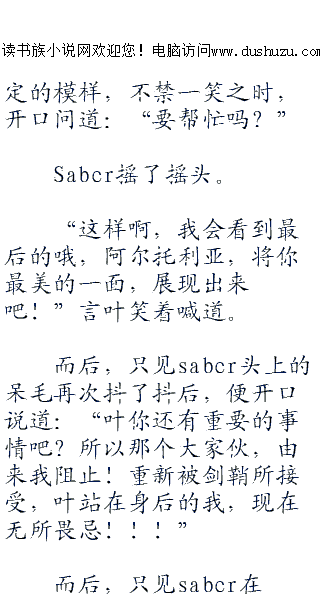 读书族小说网欢迎您！电脑访问www.dushuzu.com
定的模样，不禁一笑之时，
开口问道：“要帮忙吗？”
Saber摇了摇头。
“这样啊，我会看到最
后的哦，阿尔托利亚，将你
最美的一面，展现出来
吧！”言叶笑着喊道。
而后，只见saber头上的
呆毛再次抖了抖后，便开口
说道：“叶你还有重要的事
情吧？所以那个大家伙，由
来我阻止！重新被剑鞘所接
受，叶站在身后的我，现在
无所畏忌！！！”
而后，只见saber在